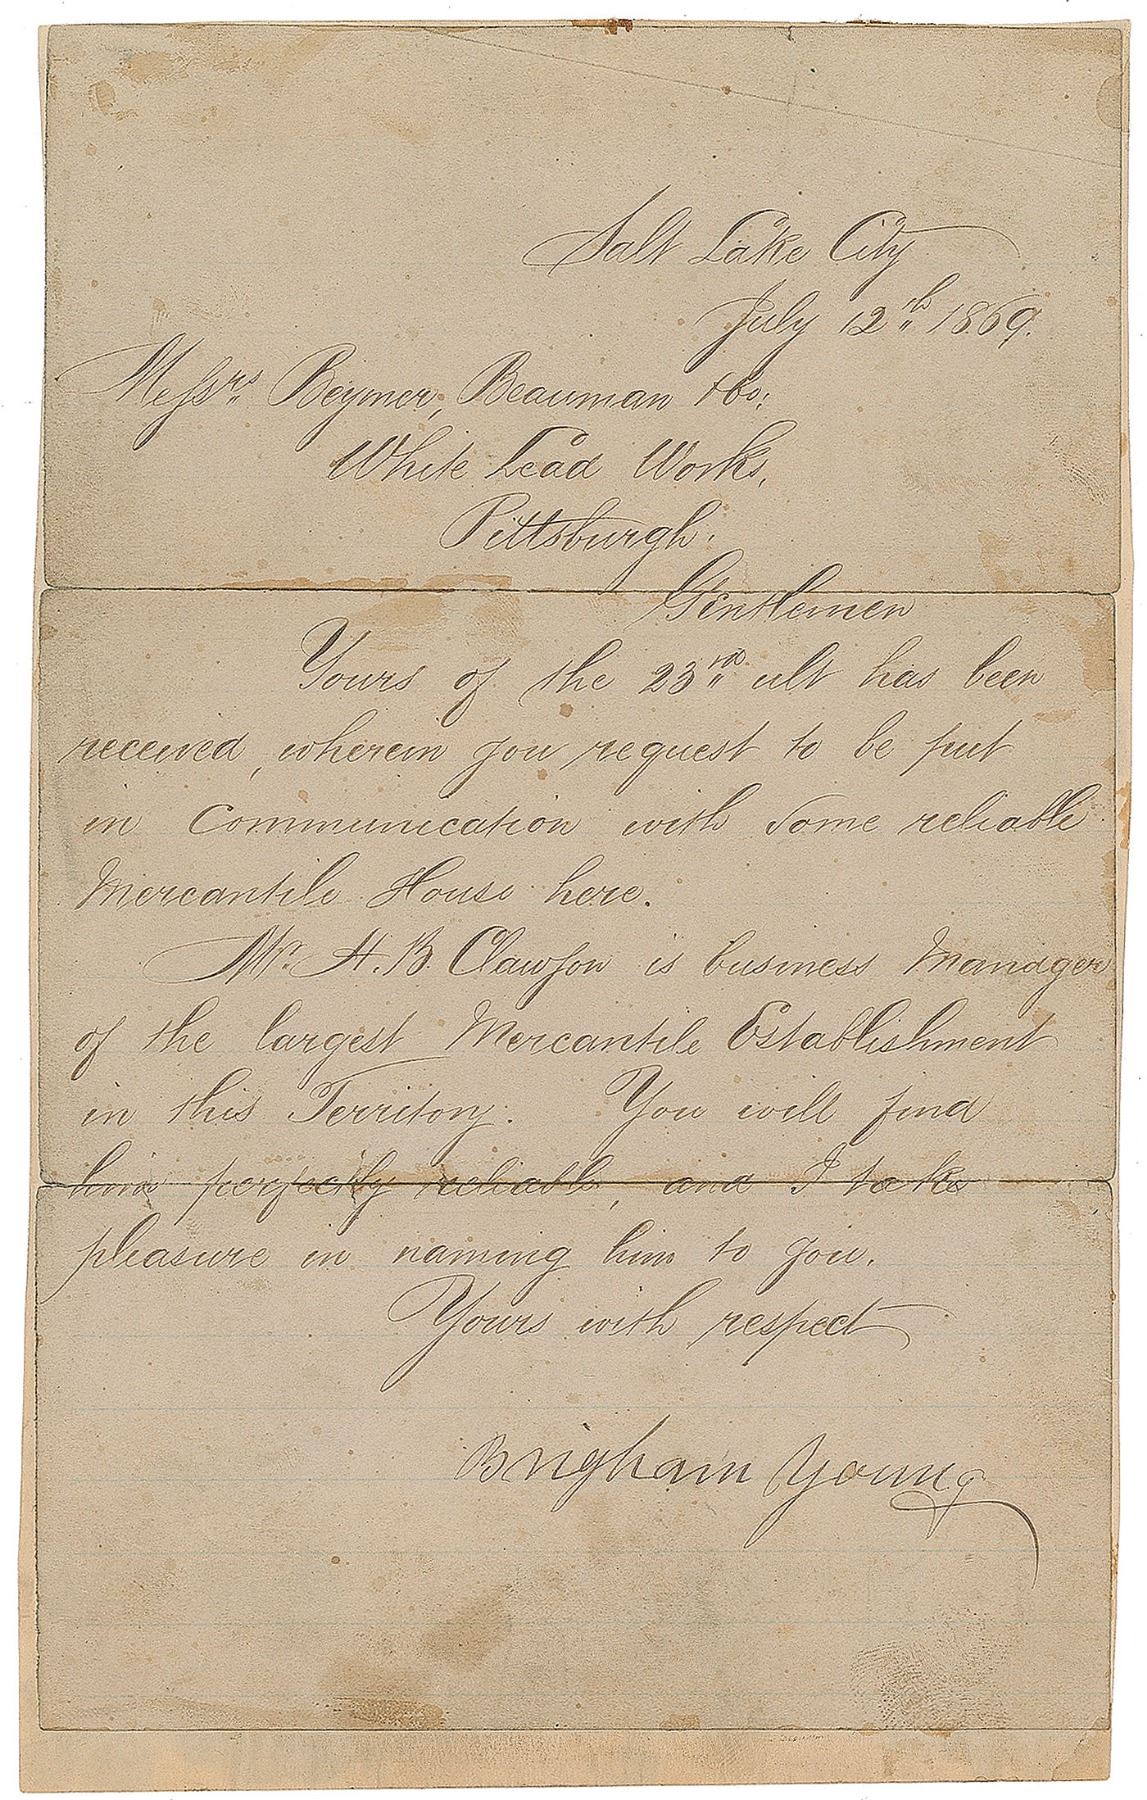 Salt Lake City
July 12th 1869.
Messrs. Beymer, Beauman & Co:
White Lead Works,
Pittsburgh.
Gentlemen
Yours of the 23rd ult has been
received, wherein you request to be put
in Communication with Some reliable
Mercantile House here.
Mr. H. B. Clawson is business Manager
of the largest Mercantile Establishment
in this Territory. You will find
him perfectly reliable, and I take
pleasure in naming him to you.
Yours with respect
Brigham Young